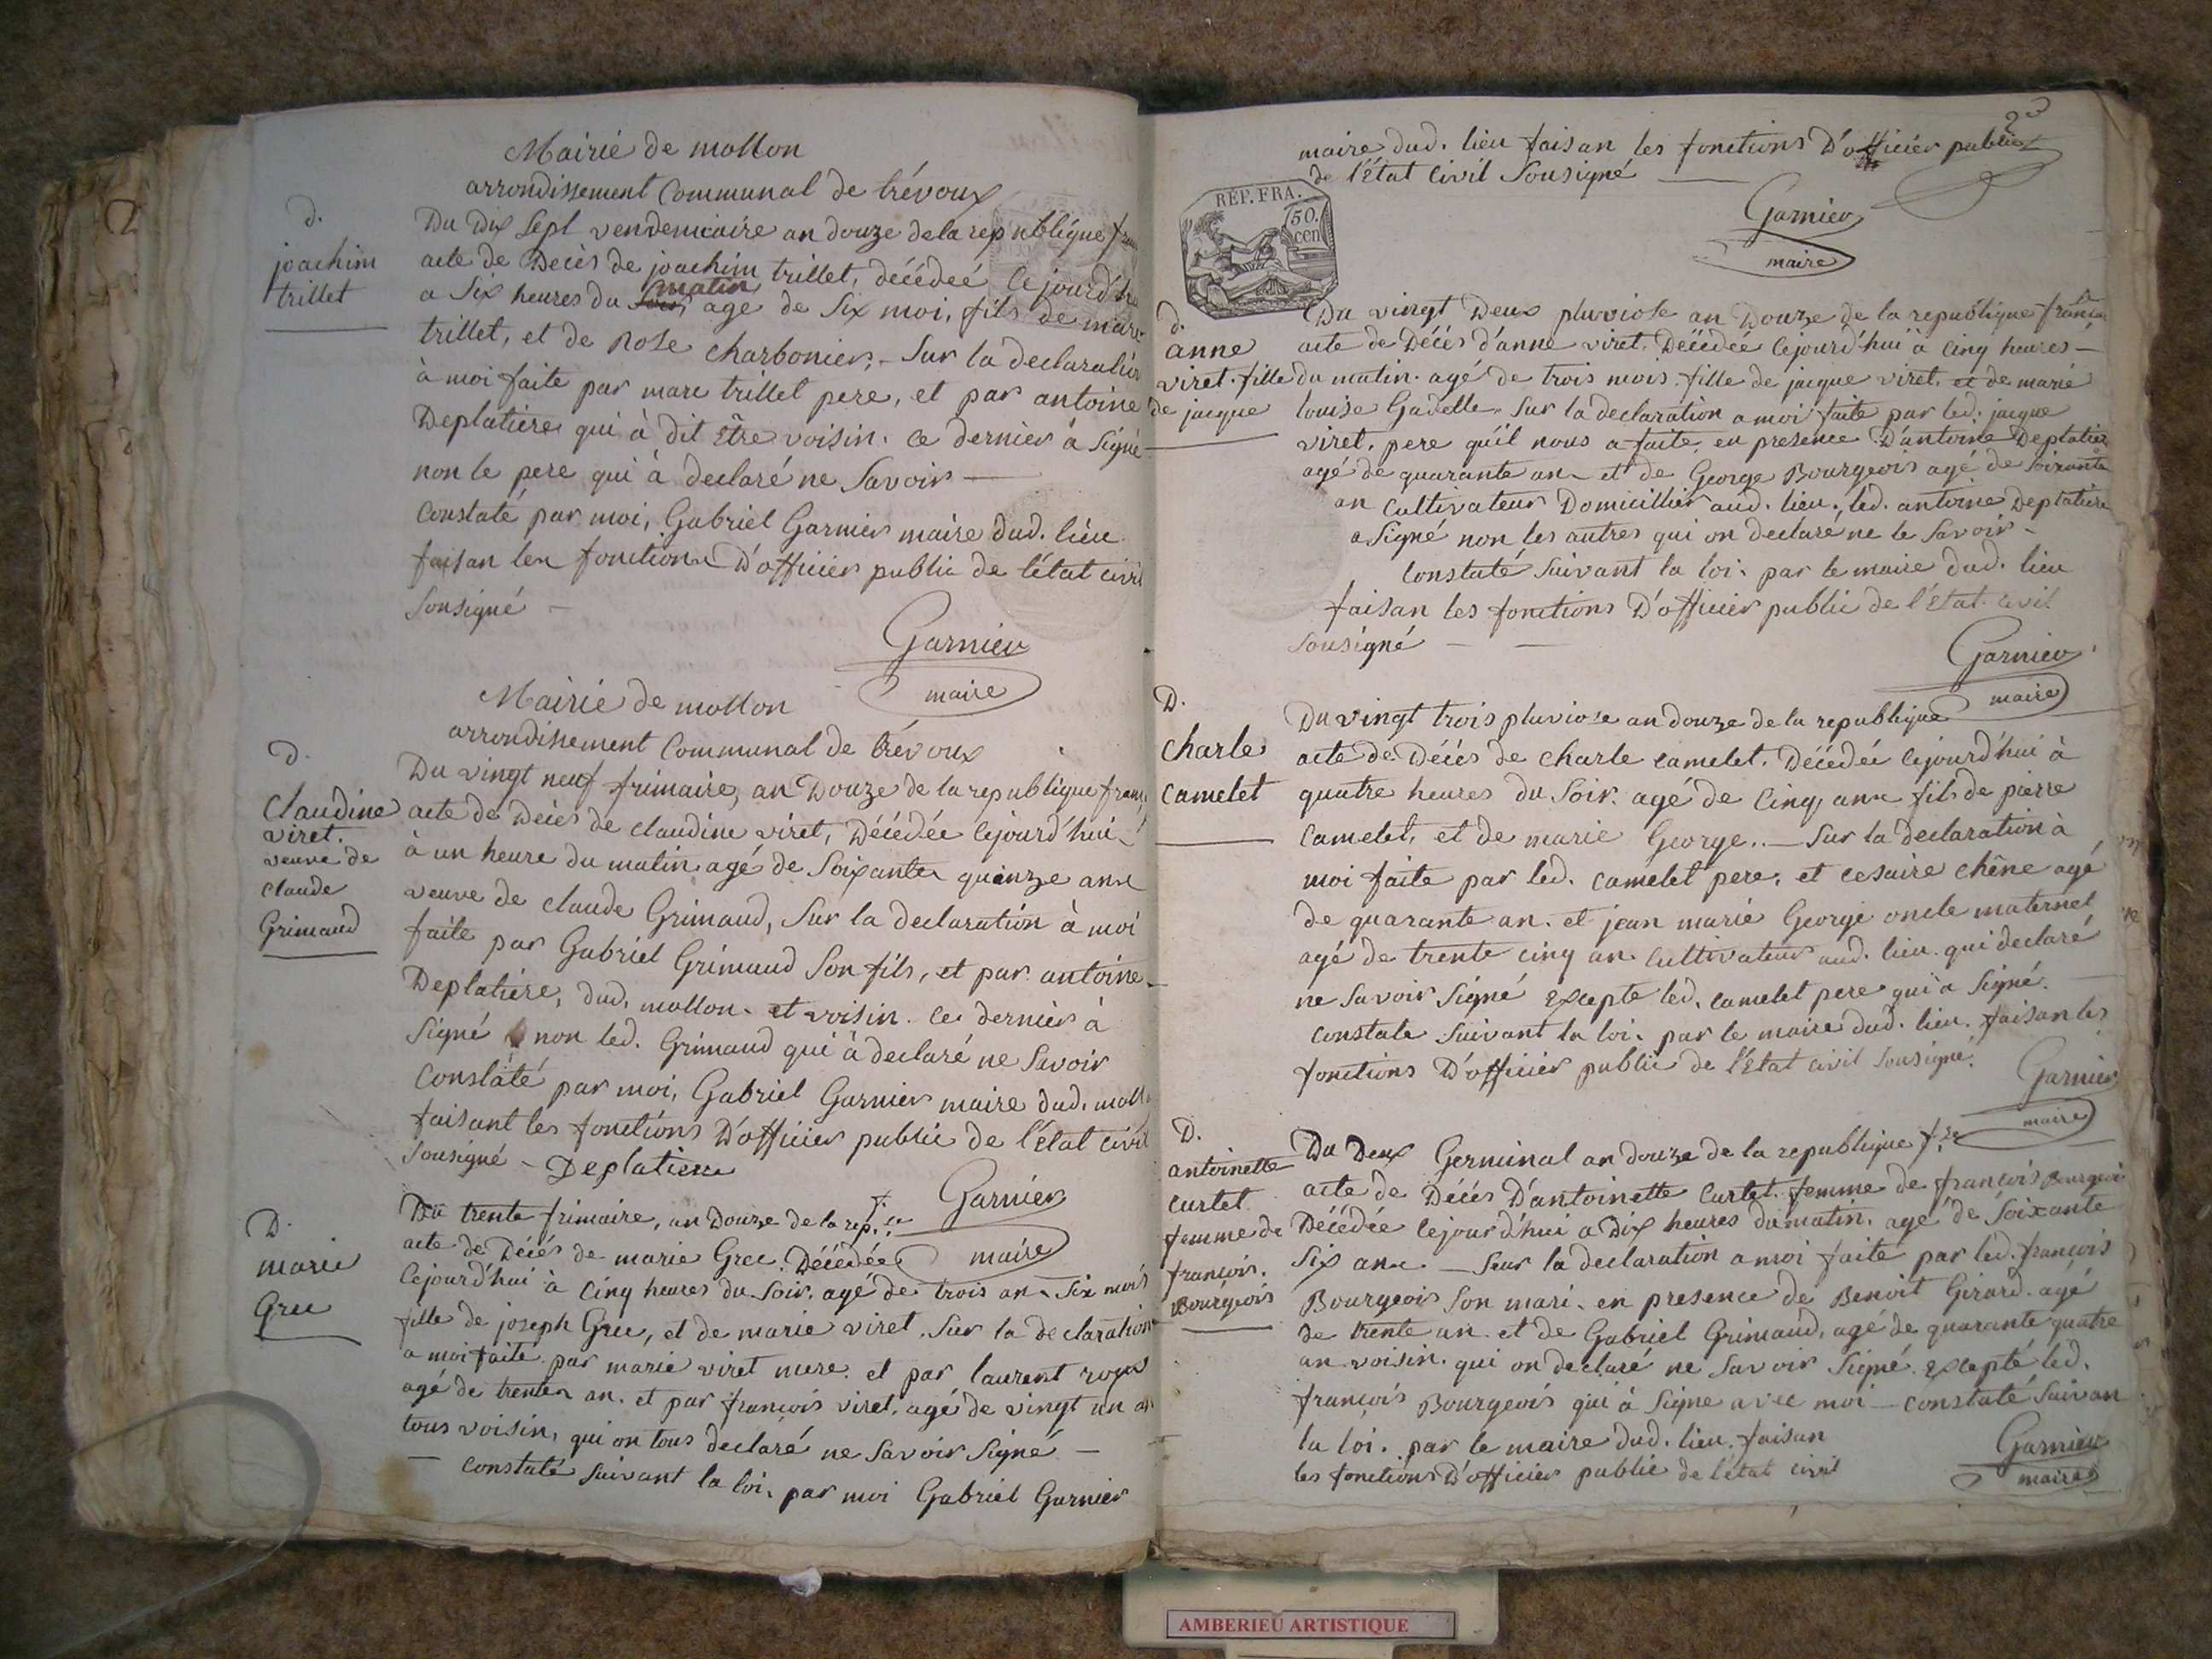 Mairie de mollon
arrondissement Communal de trévoux
d.
joachim
trillet
Du Dix Sept vendemiaire an douze de la republique fran
acte de Decès de joachim trillet, décédeé cejourd'hu
a Six heures du soir matin age de Six moi, fils de marc
trillet, et de Rose charbonier, - Sur la declaration
à moi faite par marc trillet pere, et par antoine
Deplatiere qui à dit Être voisin. ce dernier a Signé
non le pere qui à declaré ne Savoir —
Constaté par moi, Gabriel Garnier maire dud. lieu
faisan les fonctions D'officier public de l'état civil
Sousigné —
Garnier
maire
Mairie de mollon
arrondissement Communal de trévoux
D.
Claudine
viret.
veuve de
claude
Grimaud
Du vingt neuf frimaire, an Douze de la republique fran
acte de Decés de claudine viret, Décédée cejourd'hui
à un heure du matin agé de Soixante quinze ans
veuve de claude Grimaud, Sur la declaration à moi
faite par Gabriel Grimaud Son fils, et par antoine
Deplatiere, dud. mollon. et voisin. ce dernier à
Signé non led. Grimaud qui à declaré ne Savoir
Constaté par moi, Gabriel Garnier maire dud. moll
faisant les fonctions D'officier public de l'état civil
Sousigné - Deplatiere
Garnier
maire
D.
marie
Grec
Du trente frimaire, an Douze de la rep. f.se
acte de Décés de marie Grec. Décédée
Cejourd'hui à Cinq heures du Soir. agé de trois an Six mois
fille de joseph Grec, et de marie viret. Sur la declaration
a moi faite par marie viret mere. et par laurent roux
agé de trente an. et par françois viret. agé de vingt un an
tous voisin, qui on tous declaré ne Savoir Signé —
— Constaté Suivant la loi. par moi Gabriel Garnier
23
maire dud. lieu faisan les fonctions D'officier public
de l'État civil Sousigné —
RÉP. FRA.
50.
cen
Garnier
maire
d.
anne
viret. fille
de jacque
Du vingt Deux pluviose an Douze de la republique françai
acte de Décés d'anne viret. Décédée cejourd'hui à Cinq heures —
du matin. agé de trois mois. fille de jacque viret. et de marie
louise Gadelle. Sur la declaration a moi faite par led. jacque
viret. pere qu'il nous a faite. en presence D'antoine Deplatier
agé de quarante an et de George Bourgeois agé de Soixante
an Cultivateur Domicillier aud. lieu., led. antoine Deplatiere
a Signé non les autres qui on declaré ne le Savoir -
Constaté Suivant la loi. par le maire dud. lieu
faisan les fonctions D'officier public de l'État civil
Sousigné — —
Garnier
maire
D.
Charle
Camelet
Du vingt trois pluviose an douze de la republique
acte de Décés de Charle Camelet. Décédée Cejourd'hui à
quatre heures du Soir. agé de Cinq ans fils de pierre
Camelet, et de marie George.. — Sur la declaration à
moi faite par led. Camelet pere, et Cesaire Chêne agé
de quarante an. et jean marie George oncle maternel
agé de trente cinq an. Cultivateur aud. lieu. qui declaré
ne Savoir Signé Excepte led. Camelet pere qui a Signé. —
Constate Suivant la loi. par le maire dud. lieu. faisan les
fonctions D'officier public de l'Etat civil Sousigné.
Garnier
maire
D.
antoinette
curtet
femme de
françois.
Bourgeois
Du Deux Germinal an douze de la republique f.se
acte de Décés D'antoinette Curtet. femme de françois Bourgeois
Décédée Cejourd'hui a Dix heures du matin. agé de Soixante
Six ans. — Sur la declaration a moi faite par led. françois
Bourgeois Son mari. en presence de Benoit Girard. agé
de trente an. et de Gabriel Grimaud, agé de quarante quatre
an voisin. qui on declaré ne Savoir Signé. Excepté led.
françois Bourgeois qui à Signe avec moi — Constaté Suivan
la loi. par le maire dud. lieu. faisan
les fonctions D'officier public de l'état civil
Garnier
maire
AMBERIEU ARTISTIQUE